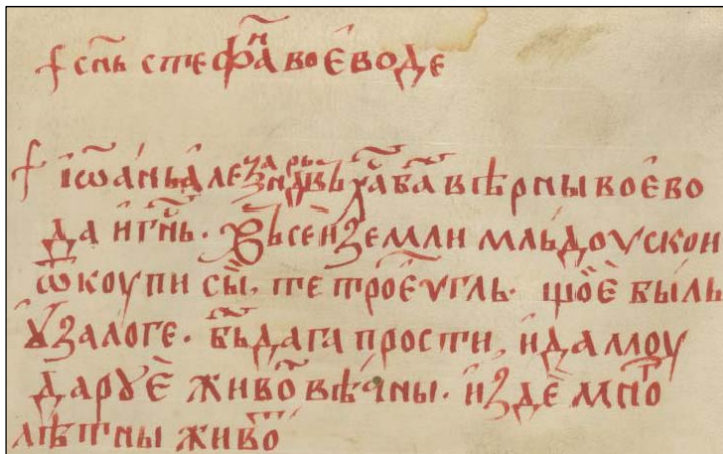 † сн҃ь стефа҃н воєводе
† іѡа́нь а́леѯандрь х҃а б҃а вѣрны воєво
да и г҃нь. въсєи земли мльдоускои
ѿкоупи сы̀. тетроєѵгль. що̀є быль
ѹ залоге. б҃ь да га прости, и да моу
дарꙋє̀ живо̑ вѣ́чны. и зде мно̑
лѣтны живо̑